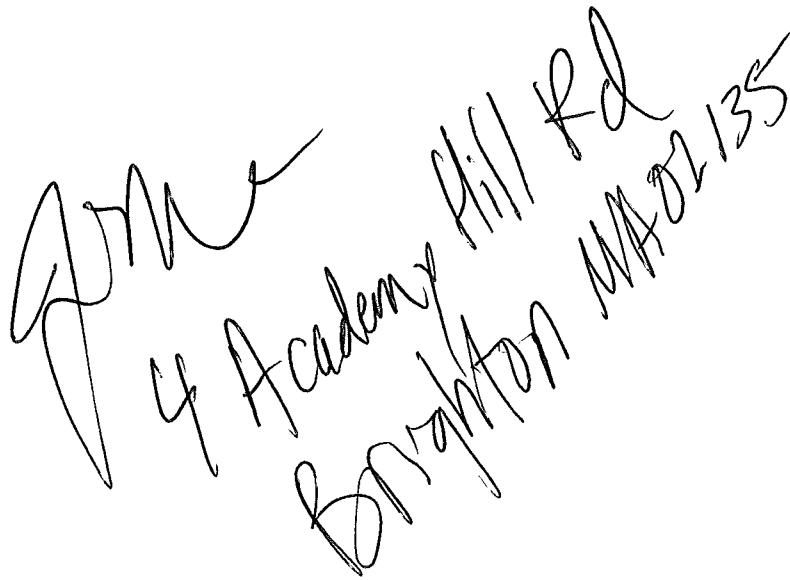 4 Academy Hill Rd
Brighton MA 02135